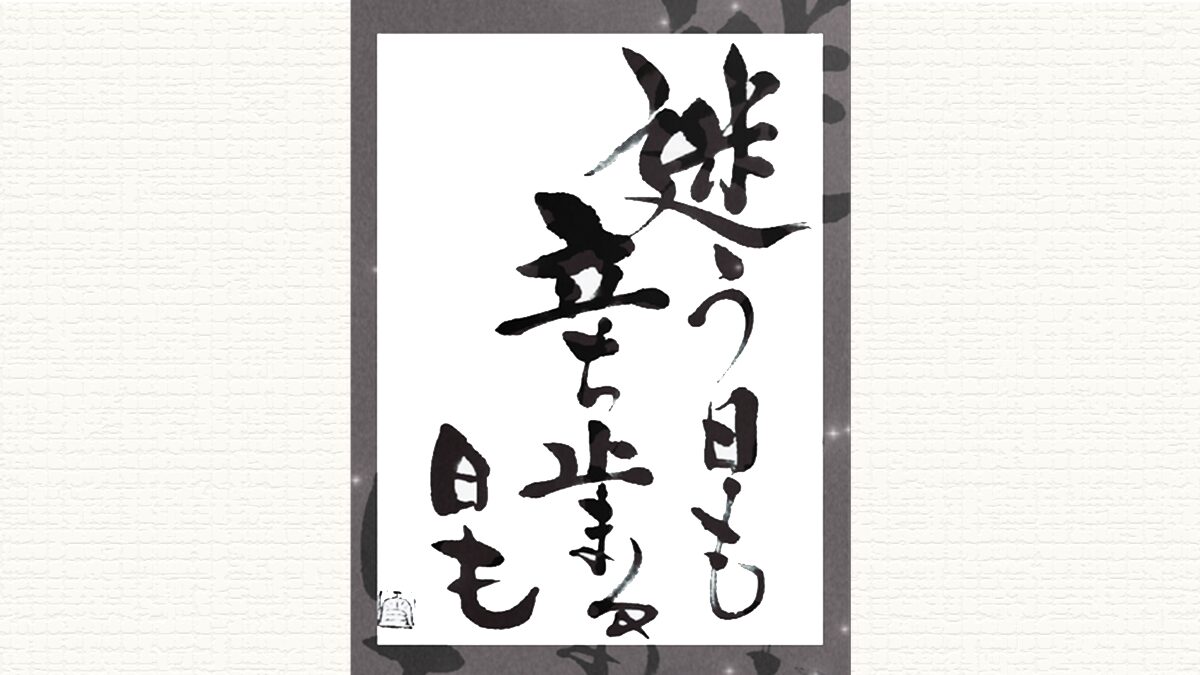 迷う日も
立ち止まる
日も